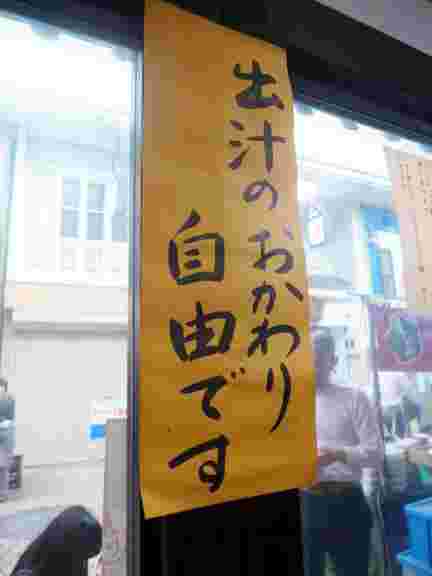 出汁のおかわり
自由です